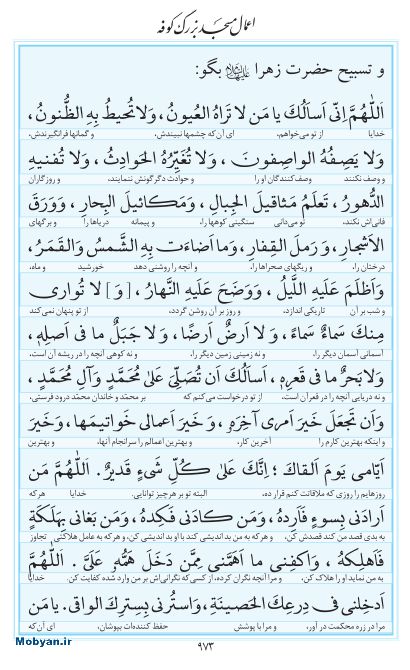 اعمال مسجد بزرگ کوفه
و تسبیح حضرت زهرا علیها السلام بگو:
اَللّهُمَّ اِنّی اَسأَلُكَ یا مَن لا تَراهُ العُیونُ، وَلا تُحیطُ بِهِ الظُّنونُ،
خدایا از تو می‌خواهم، ای آن‌که چشمها نبیندش، و گمانها فرانگیرندش،
وَلا یَصِفُهُ الواصِفونَ، وَلا تُغَیِّرُهُ الحَوادِثُ، وَلا تُفنیهِ
و وصف نکنند وصف‌کنندگان او را و حوادث دگرگونش ننمایند، و روزگاران
الدُّهورُ، تَعلَمُ مَثاقیلَ الجِبالِ، وَمَكائیلَ البِحارِ، وَوَرَقَ
فانی‌اش نکند. تو می‌دانی سنگینی کوهها را، و پیمانه دریاها را و برگهای
الاَشجارِ، وَرَملَ القِفارِ، وَما اَضاءَت بِهِ الشَّمسُ وَالقَمَرُ،
درختان را، و ریگهای صحراها را، و آنچه را روشنی دهد خورشید و ماه،
وَاَظلَمَ عَلَیهِ اللَّیلُ، وَوَضَحَ عَلَیهِ النَّهارُ، [وَ] لا تُواری
و شب بر آن تاریکی اندازد، و روز بر آن روشن گردد، از تو پنهان نمی‌کند
مِنكَ سَماءٌ سَماءً، وَ لا اَرضٌ اَرضًا، وَ لا جَبَلٌ ما فی اَصلِهِ،
آسمانی آسمان دیگر را، و نه زمینی زمین دیگر را، و نه کوهی آنچه را در ریشه آن است،
وَلا بَحرٌ ما فی قَعرِهِ، اَسأَلُكَ اَن تُصَلِّیَ عَلیٰ مُحَمَّدٍ وَآلِ مُحَمَّدٍ،
و نه دریایی آنچه را در قعر آن است، از تو درخواست می‌کنم که بر محمّد و خاندان محمّد درود فرستی،
وَاَن تَجعَلَ خَیرَ اَمری آخِرَهُ، وَ خَیرَ اَعمالی خَواتیمَها، وَخَیرَ
و اینکه بهترین کارم را آخرین کار، و بهترین اعمالم را سرانجام آنها، و بهترین
اَیّامی یَومَ اَلقاكَ؛ اِنَّكَ عَلیٰ كُلِّ شَیءٍ قَدیرٌ. اَللّهُمَّ مَن
روزهایم را روزی که ملاقاتت کنم قرار ده، البته تو بر هر چیز توانایی. خدایا هر که
اَرادَنی بِسوءٍ فَاَرِدهُ، وَمَن كادَنی فَكِدهُ، وَمَن بَغانی بِهَلَكَةٍ
به بدی قصد من کند قصدش کن، و هر که به من بد اندیشی کند با او بد اندیشی کن، و هر که به عامل هلاکتی تجاوز
فَاَهلِكهُ، وَاكفِنی ما اَهَمَّنی مِمَّن دَخَلَ هَمُّهُ عَلَیَّ. اَللّهُمَّ
به من نماید او را هلاک کن، و مرا آنچه نگران کرده، از کسی که نگرانی‌اش بر من وارد شده کفایت کن. خدایا
اَدخِلنی فی دِرعِكَ الحَصینَةِ، وَاستُرنی بِسِترِكَ الواقی. یا مَن
مرا در زره محکمت در آور، و مرا با پوشش حفظ کننده‌ات بپوشان، ای آن‌که
۹۷۳
Mobyan.ir